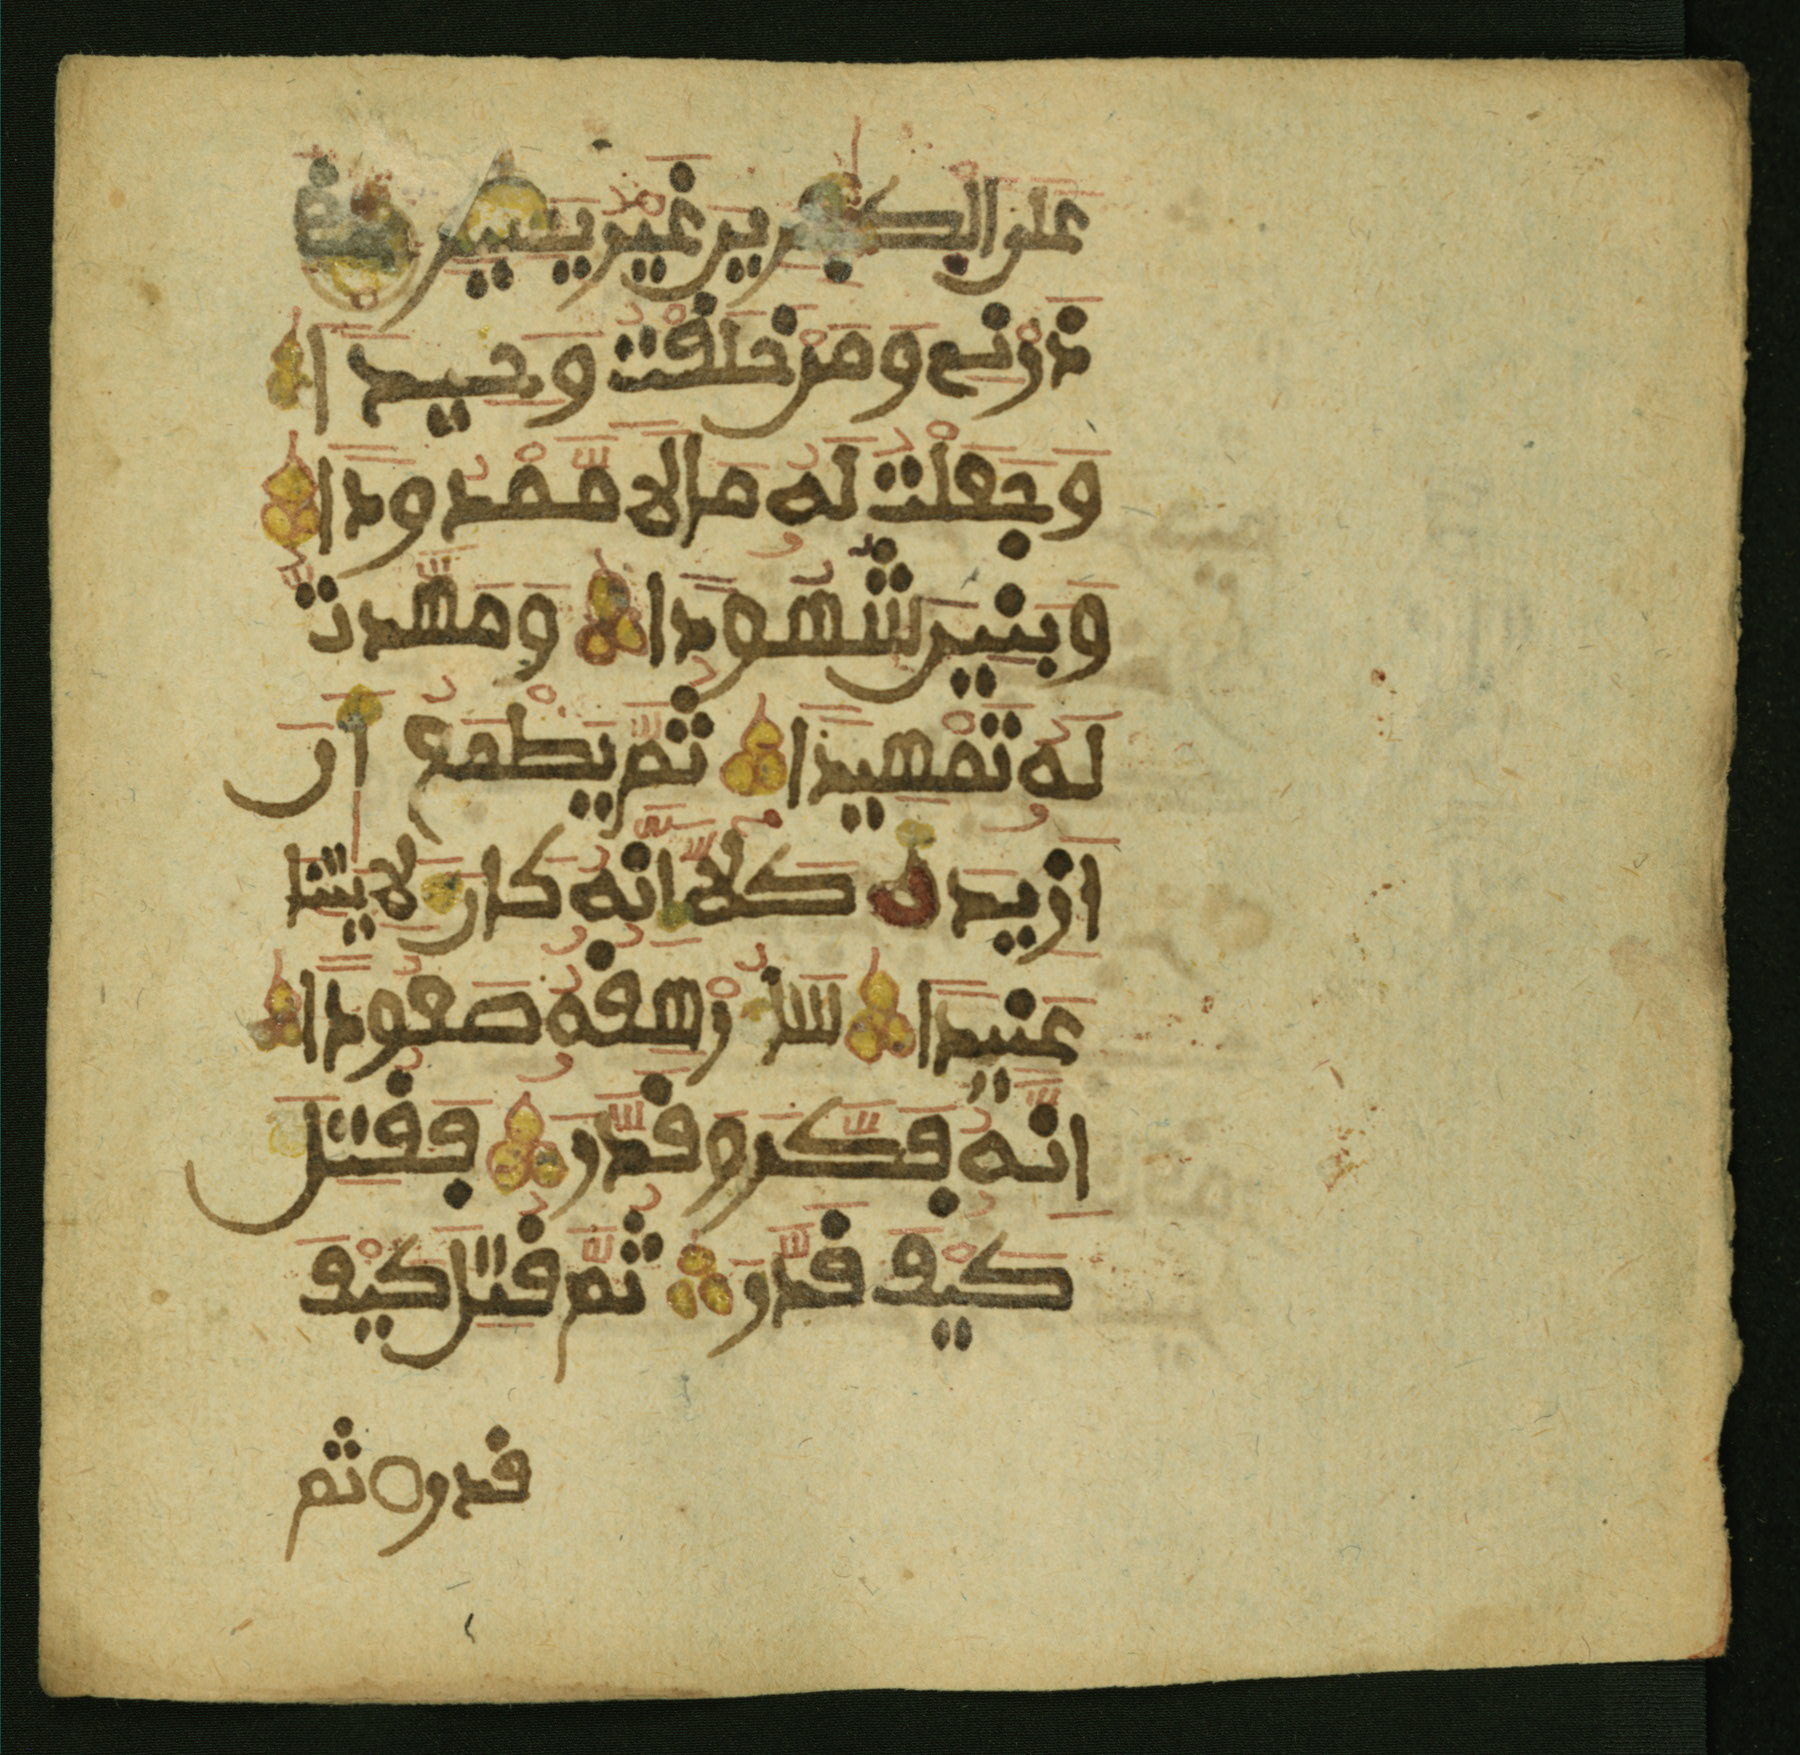 عَلَى الْكٰفِرِينَ غَيْرُ يَسِيرٍ
ذَرْنِي وَمَنْ خَلَقْتُ وَحِيدًا
وَجَعَلْتُ لَهُ مَالًا مَّمْدُودًا
وَبَنِينَ شُهُودًا وَمَهَّدتُّ
لَهُ تَمْهِيدًا ثُمَّ يَطْمَعُ أَنَ
ازِيدَ كَلَّا إِنَّهُ كَانَ لِأيٰتِنَا
عَنِيدًا سَأُرْهِقُهُ صَعُودًا
إِنَّهُ فَكَّرَ وَقَدَّرَ فَقُتِلَ
كَيْفَ قَدَّرَ ثُمَّ قُتِلَ كَيْفَ
قدر ثم